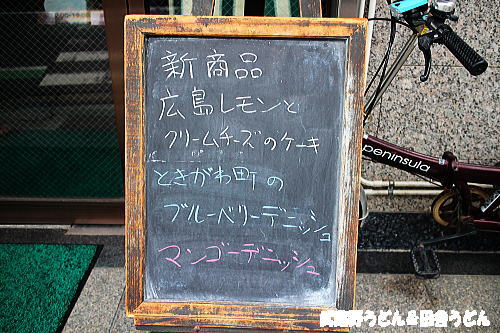 新商品
広島レモンと
クリームチーズのケーキ
ときがわ町の
ブルーベリーデニッシュ
マンゴーデニッシュ
peninsula
武蔵野うどん&田舎うどん